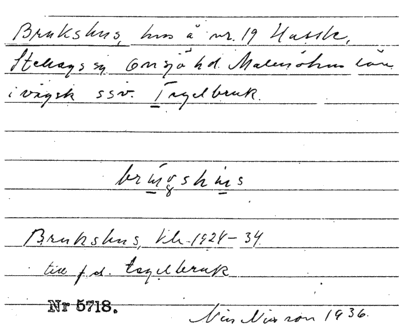 Brukshus, hus å nr. 19 Hassle,
Stehags sn Onsjö hd. Malmöhus län
i vägsk ssv. Tegelbruk.
brúgshus
Brukshus, bl. 1924-34
till f.d. tegelbruk
Nr 5718.
Nils Nilsson 1936.